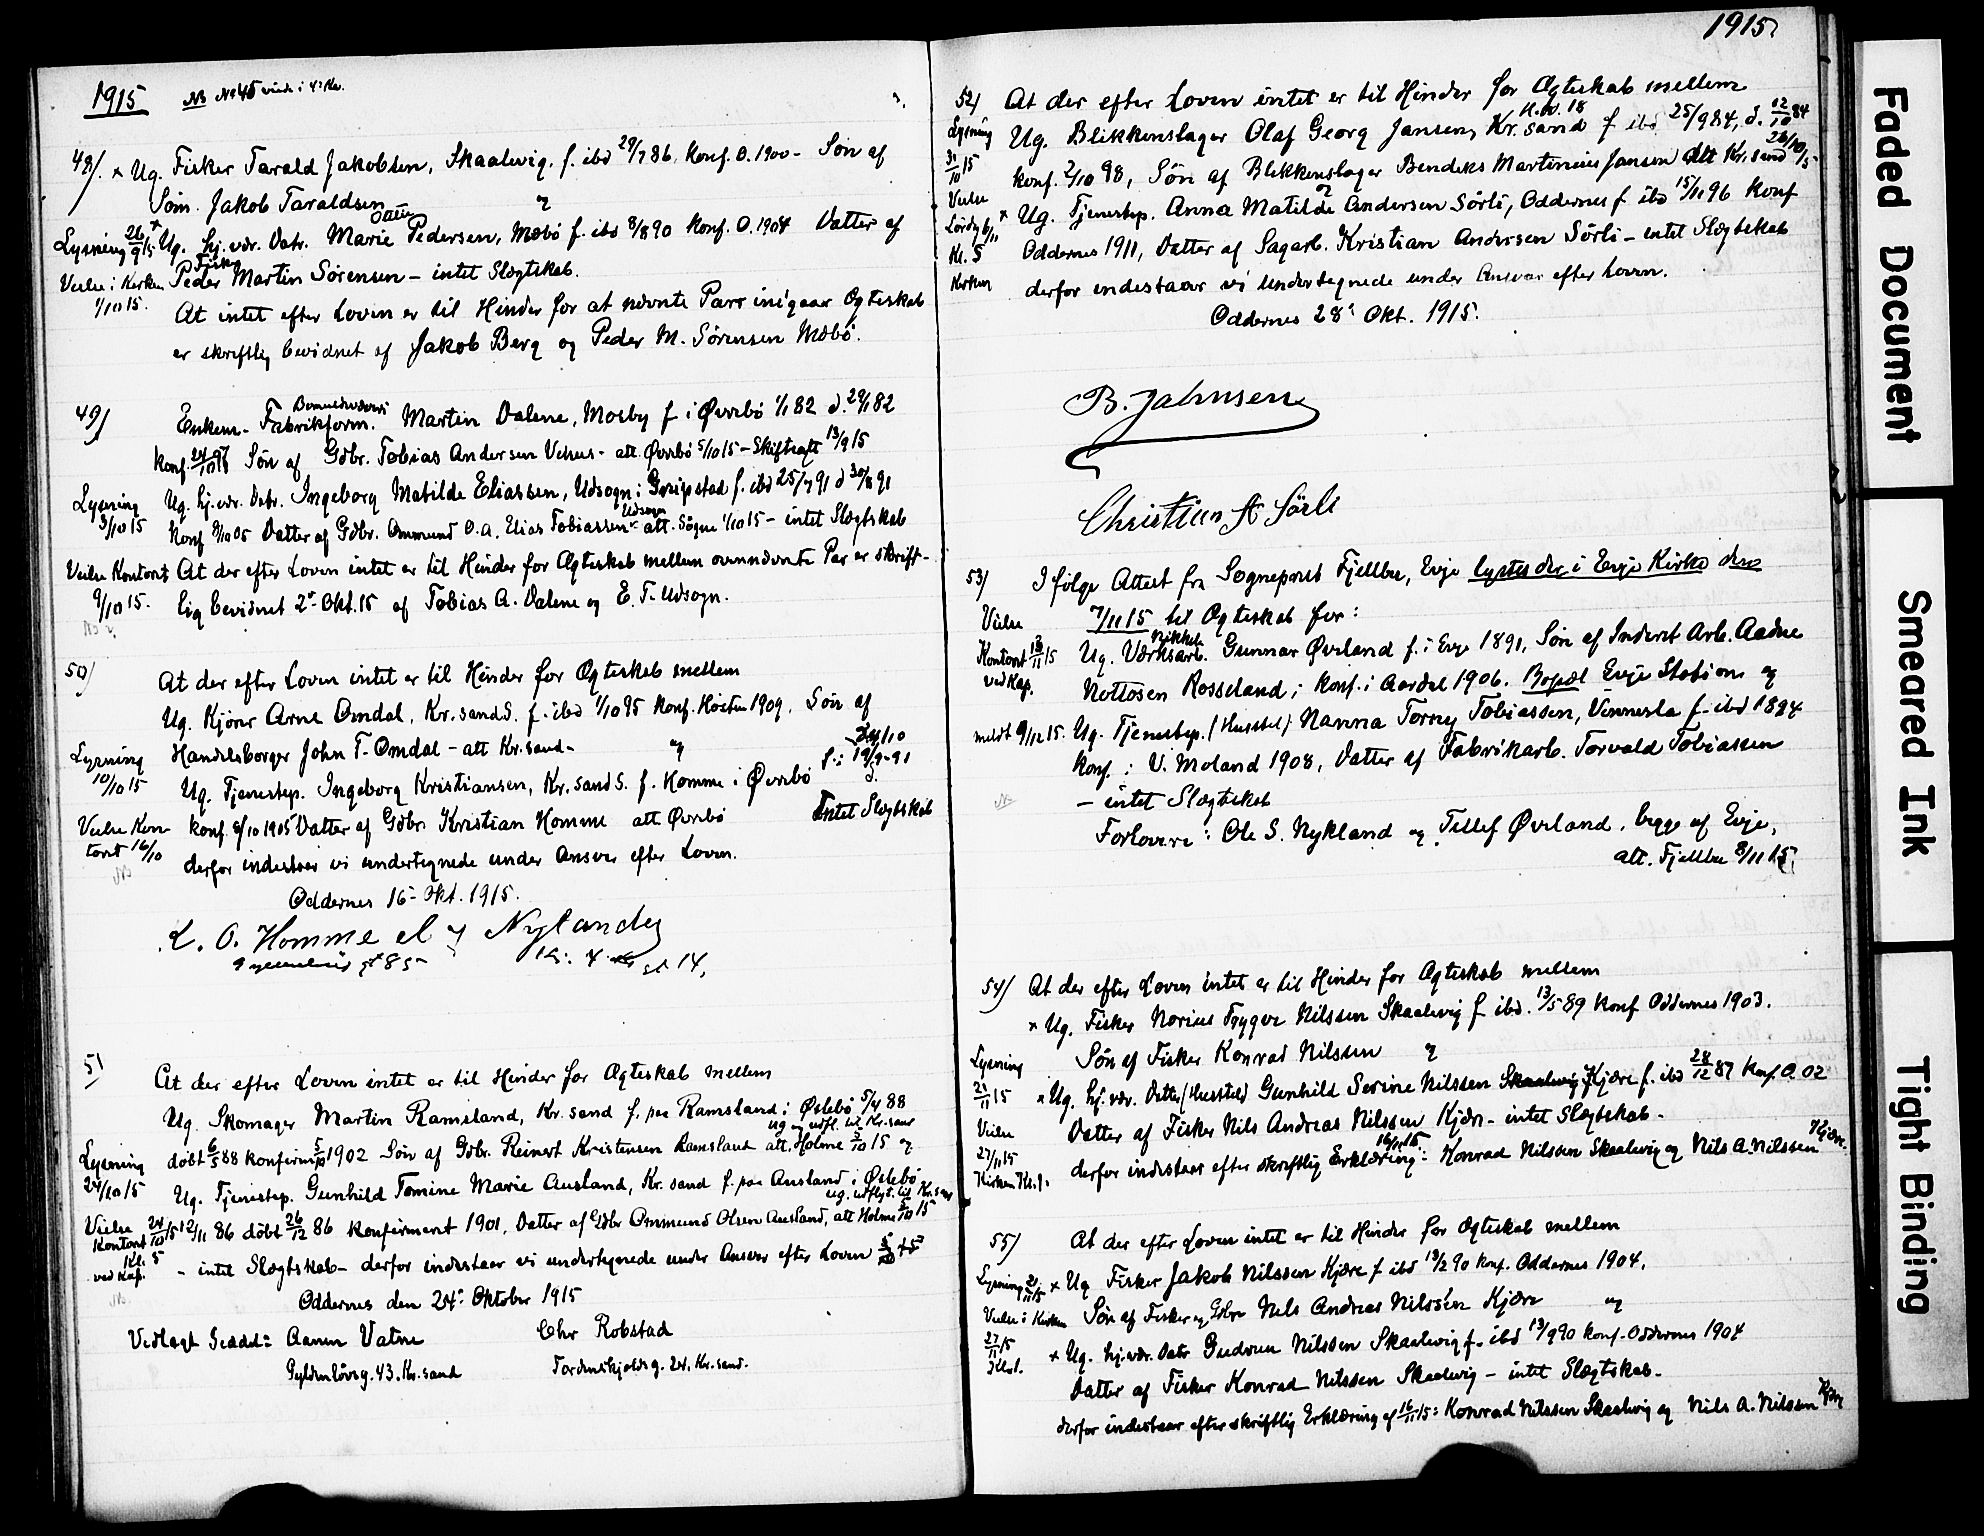 1915
NB No 45
48/. × Ug. Fisker Tarald Jakobsen, Skaalevig. f. ibd 29/7 86. Konf. O. 1900 - Søn af
Søm. Jakob Taraldsen og
Lysning 26/9 15 × Ug. hj. vær. Datr. Marie Otilie Pedersen, Mæbø f. ibd 8/8 90 Konf. O. 1904 Datter af
Vielse i Kirken Fisker Peder Martin Sørensen - intet Slægtskab.
1/10 15. At intet efter Loven er til Hinder for at nævnte Parr inigaar Ægteskab
er skriftlig bevidnet af Jakob Berg og Peder M. Sørensen Mæbø.
49/ Enkem. Fabrikform. Martin Dalene, Mosby f i Øvrebø 1/1 82 d. 29/1 82
konf. Søn af Gdbr. Tobias Andersen - att. Øvrebø 5/10 15 - Skifteatt 13/9 15
Lysning Ug. hj. vær. Datr. Ingeborg Matilde Eliassen, Udsogn i Greipstad f. ibd 25/7 91 d 30/8 91
3/10 15 Konf 8/10 05 Datter af Gdbr. Ommund O. a. Elias Tobiassen Udsogn att. Søgne 1/10 15 - intet Slægtskab
Vielse Kontoret At der efter Loven intet er til Hinder for Ægteskab mellem ovennævnte Par er skrift-
9/10 15. lig bevidnet 2- Okt. 15 af Tobias A. Dalene og E. T. Udsogn.
50/ At der efter Loven intet er til Hinder for Ægteskab mellem
Ug. Kjører Arne Omdal, Kr.sand S. f. ibd 1/10 95 Konf. Høsten 1909. Søn af
Lysning Handelsborger John T. Omdal - att Kr.sand - og
10/10 15 Ug. Tjenestep. Ingeborg Kristiansen, Kr.sand S. f. Homme i Øvrebø f. 19/9 - 91
Vielse Kon- konf. 8/10 1905 Datter af Gdbr. Kristian Homme att Øvrebø Intet Slægtskab
toret 16/10 derfor indestaar vi undertegnede under Ansvar efter Loven.
Oddernes 16- Okt. 1915.
K. O. Homme Nylander
gt 85 14.
51/ At der efter Loven intet er til Hinder for Ægteskab mellem
Ug. Skomager Martin Ramsland, Kr.sand f. paa Ramsland i Øslebø 5/4 88
ug og udfl. til Kr.sand
Lysning døbt 6/5 88 konfirm 5/10 1902 Søn af Gdbr. Reinert Kristensen Ramsland att. Holme 5/10 15 og
24/10 15 Ug. Tjenestep. Gunhild Tomine Marie Ausland, Kr.sand f. paa Ausland i Øslebø
ug. udflyt. til Kr.sand
Vielse 24/10 15 12/11 86 døbt 26/12 86 konfirmeret 1901. Datter af Gdbr Ommund Olsen Ausland, att Holme 5/10 15
Kontoret Kl. 5 ved Kap. - intet Slægtskab - derfor indestaar vi undertegnede under Ansvar efter Loven
Oddernes den 24- Oktober 1915
Vedlagt Seddel: Aanen Vatne Chr Robstad
Gyldenløvsg. 43. Kr.sand Tordenskjoldsg. 24. Kr.sand.
1915
52/ At der efter Loven intet er til Hinder for Ægteskab mellem
Lysning Ug. Blikkenslager Olaf Georg Jansen, Kr.sand f ibd 25/9 84, d. 12/10 84
31/10 15 konf. 2/10 98, Søn af Blikkenslager Bendiks Martinius Jansen Att Kr.sand 26/10 15
Vielse og
Lørdg 6/11 × Ug. Tjenestep. Anna Matilde Andersen Sørli, Oddernes f ibd 15/11 96 Konf
Kl. 5 Oddernes 1911, Datter af Sagarb. Kristian Andersen Sørli - intet Slægtskab
Kirken derfor indestaar vi undertegnede under Ansvar efter Loven.
Oddernes 28- Okt. 1915.
B. Jahnsen
Christian A Sørli
53/ Ifølge Attest fra Sogneprest Fjellbu, Evje lystes der i Evje Kirke den
Vielse 7/11 15 til Ægteskab for:
Kontoret 13/11 15 Ug. Nikkelværksarb. Gunnar Øvland f. i Evje 1891, Søn af Inderst Arb. Aadne
ved Kap. Nottosen Rosseland, konf. i Aardal 1906. Bopæl Evje Station og
meldt 9/12 15. Ug. Tjenestep. (Husstel) Nanna Torny Tobiassen, Vennesla f. ibd 1894
konf. i V. Moland 1908, Datter af Fabrikarb. Torvald Tobiassen
- intet Slægtskab
Forlovere: Ole S. Nykland og Tellef Øvland, begge af Evje,
att. Fjellbu 8/11 15
54/ At der efter Loven intet er til Hinder for Ægteskab mellem
× Ug. Fisker Norius Trygve Nilssen Skaalevig f ibd. 13/5 89 konf Oddernes 1903.
Lysning Søn af Fisker Konrad Nilssen og
21/11 15 × Ug. hj. vær. Datter (Husstel) Gunhild Serine Nilssen Kjære f. ibd 28/12 87 konf. O. 02
Vielse Datter af Fisker Nils Andreas Nilssen Kjær - intet Slægtskab -
27/11 15 derfor indestaar efter skriftlig Erklæring 16/11 15: Konrad Nilssen Skaalevig og Nils A. Nilssen Kjære
Kirken Kl.
55/ At der efter Loven intet er til Hinder for Ægteskab mellem
Lysning 21/11 15 × Ug Fisker Jakob Nilssen Kjære f ibd 18/2 90 konf. Oddernes 1904.
Vielse i Kirken Søn af Fisker og Gdbr Nils Andreas Nilssen Kjære og
27/11 15 × Ug. hj. vær. Datr Gudrun Nilssen Skaalevig f. ibd 13/9 90 konf. Oddernes 1904
Datter af Fisker Konrad Nilssen Skaalevig - intet Slægtskab -
derfor indestaar efter skriftlig Erklæring af 16/11 15: Konrad Nilssen Skaalevig og Nils A. Nilssen Kjær
Faded Document
Smeared Ink
Tight Binding